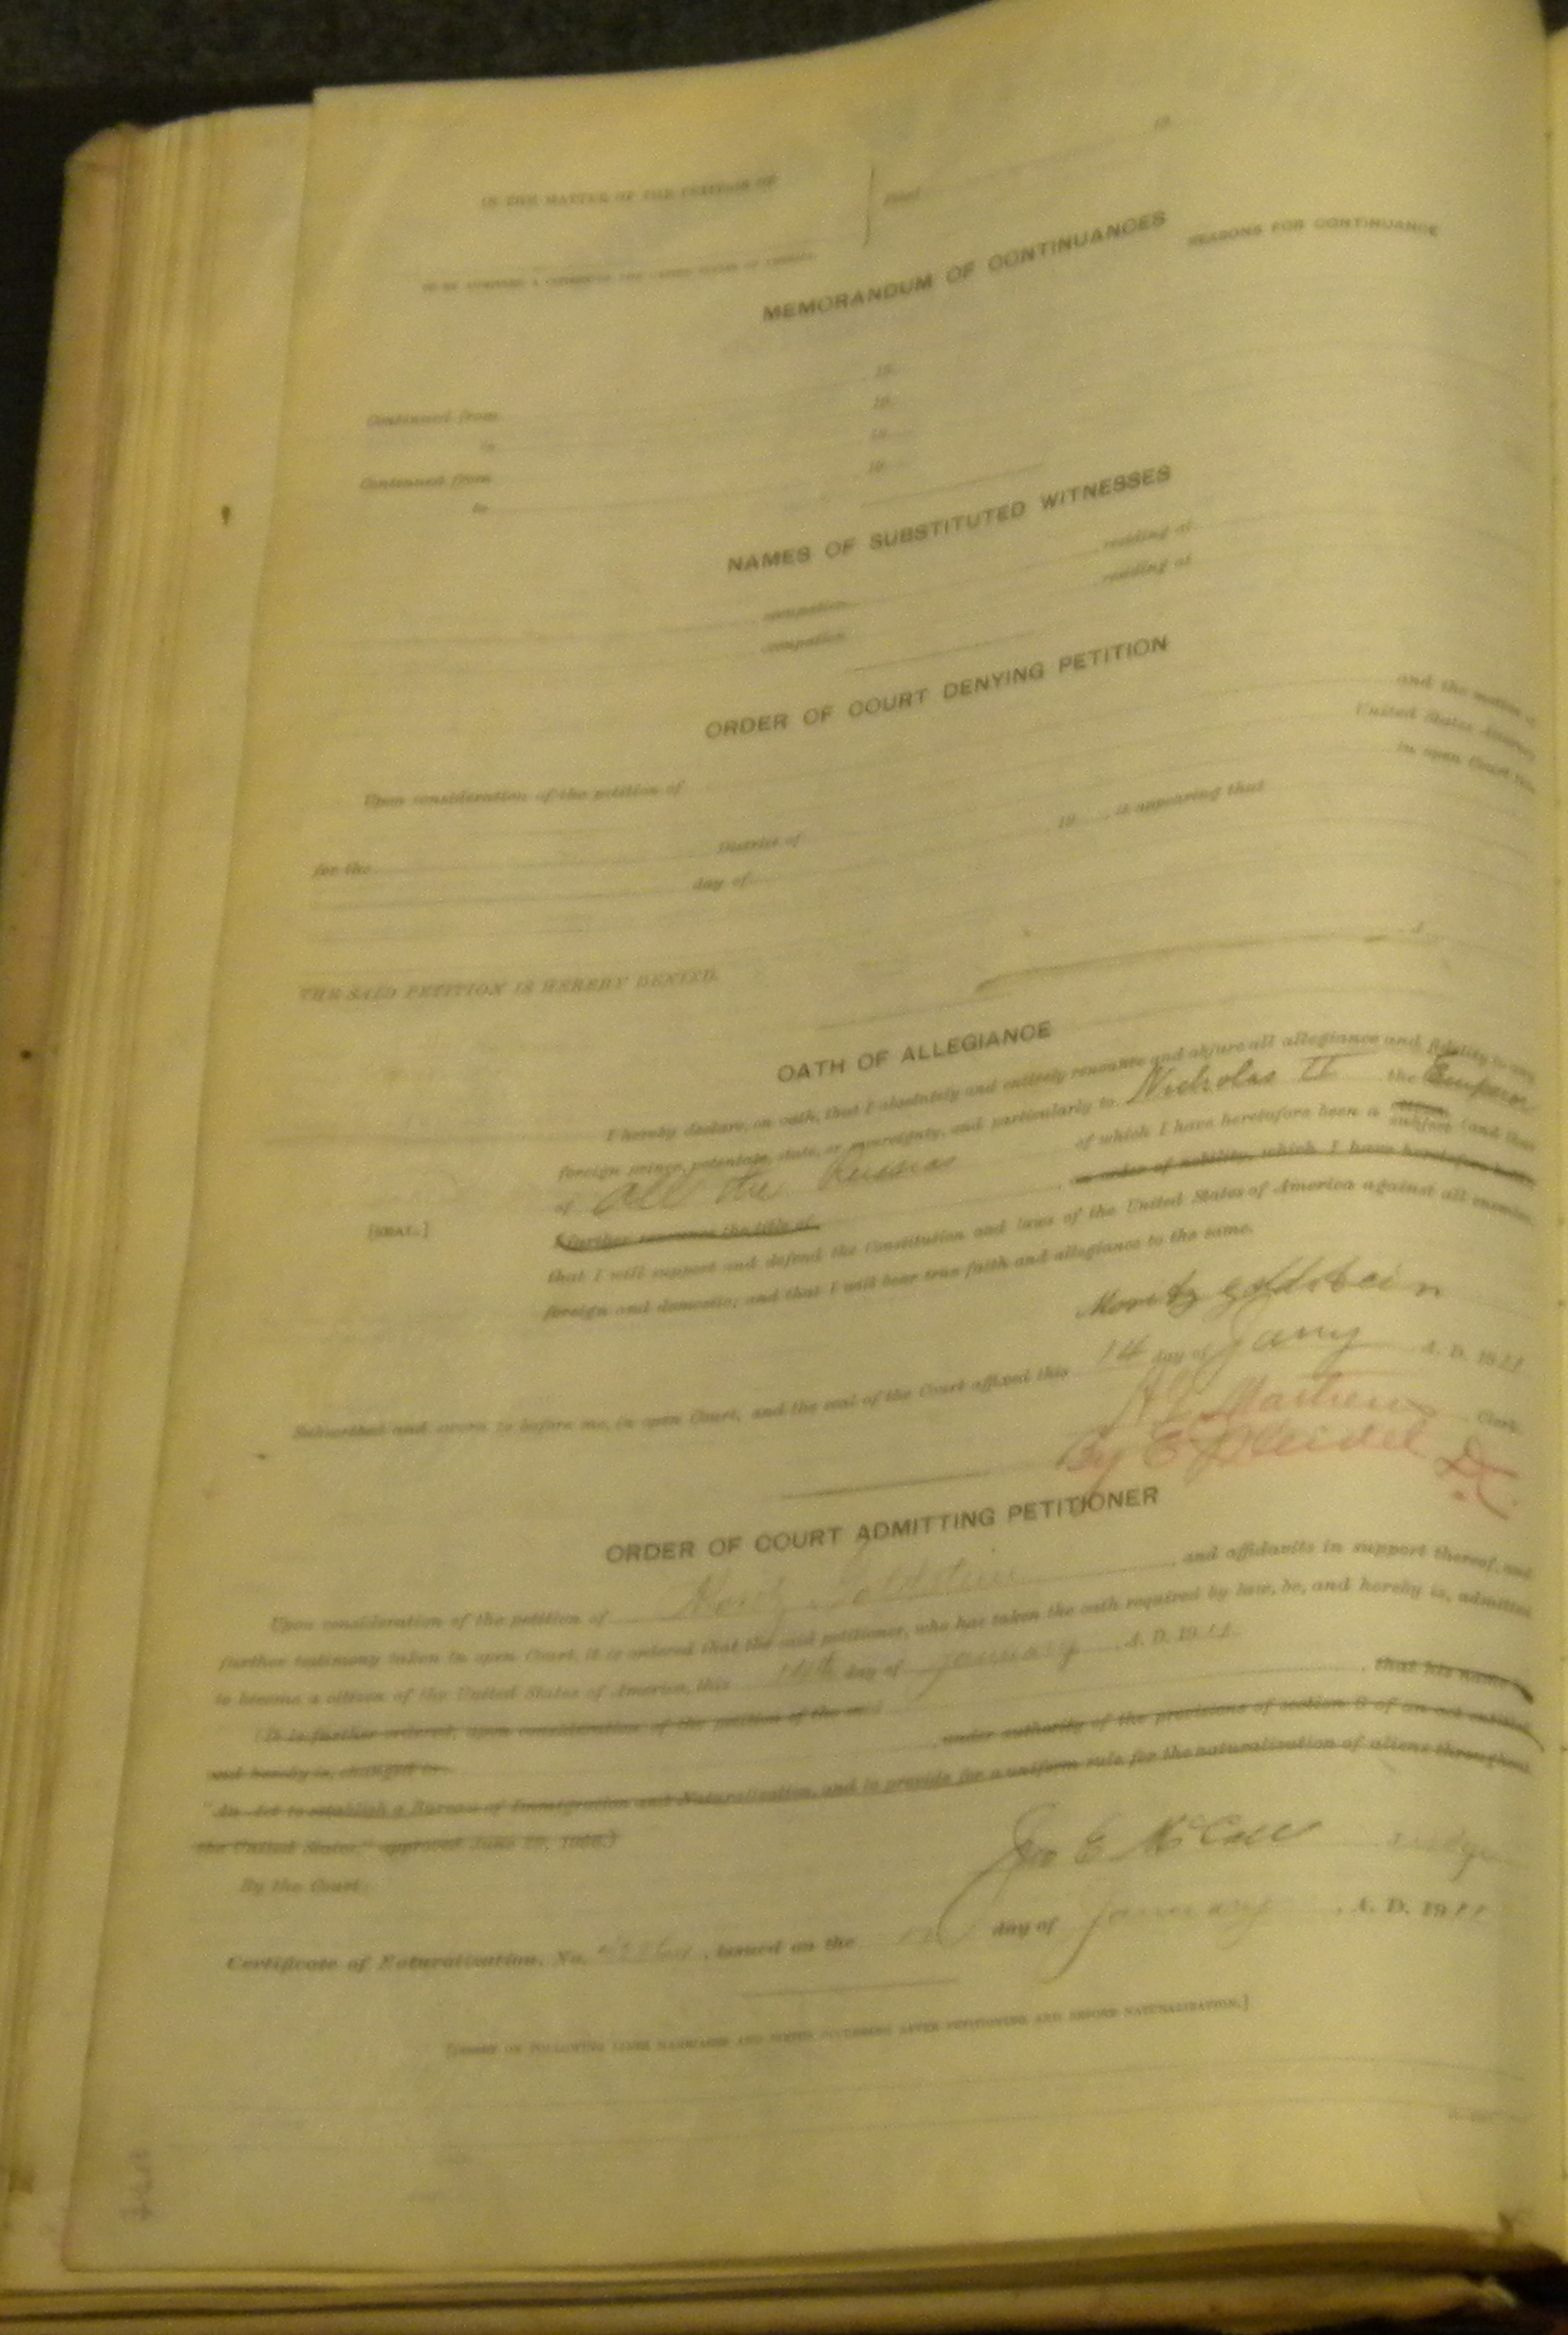 IN THE MATTER OF THE PETITION OF
Filed 19
TO BE ADMITTED A CITIZEN OF THE UNITED STATES OF AMERICA.
MEMORANDUM OF CONTINUANCES
REASONS FOR CONTINUANCE
Continued from 19
to 19
Continued from 19
to 19
NAMES OF SUBSTITUTED WITNESSES
occupation residing at
occupation residing at
ORDER OF COURT DENYING PETITION
Upon consideration of the petition of and the motion of
for the District of United States Attorney
day of 19 , it appearing that in open Court this
THE SAID PETITION IS HEREBY DENIED.
OATH OF ALLEGIANCE
I hereby declare, on oath, that I absolutely and entirely renounce and abjure all allegiance and fidelity to any
foreign prince, potentate, state, or sovereignty, and particularly to Nicholas II the Emperor
of all the Russias of which I have heretofore been a citizen subject (and that
I further renounce the title of , an order of nobility, which I have heretofore held);
[SEAL.]
that I will support and defend the Constitution and laws of the United States of America against all enemies,
foreign and domestic; and that I will bear true faith and allegiance to the same.
Moritz Goldstein
Subscribed and sworn to before me, in open Court, and the seal of the Court affixed this 14 day of Jany A. D. 1911
Clerk.
By E D.C.
ORDER OF COURT ADMITTING PETITIONER
Upon consideration of the petition of Moritz Goldstein , and affidavits in support thereof, and
further testimony taken in open Court, it is ordered that the said petitioner, who has taken the oath required by law, be, and hereby is, admitted
to become a citizen of the United States of America, this 14th day of January A. D. 1911.
(It is further ordered, upon consideration of the petition of the said , that his name be,
and hereby is, changed to , under authority of the provisions of section 6 of an act entitled
"An Act to establish a Bureau of Immigration and Naturalization, and to provide for a uniform rule for the naturalization of aliens throughout
the United States," approved June 29, 1906.)
By the Court:
Jno E McCall Judge
Certificate of Naturalization, No. , issued on the day of January , A. D. 1911
[ENTER ON FOLLOWING LINES MARRIAGES AND BIRTHS OCCURRING AFTER PETITIONING AND BEFORE NATURALIZATION.]